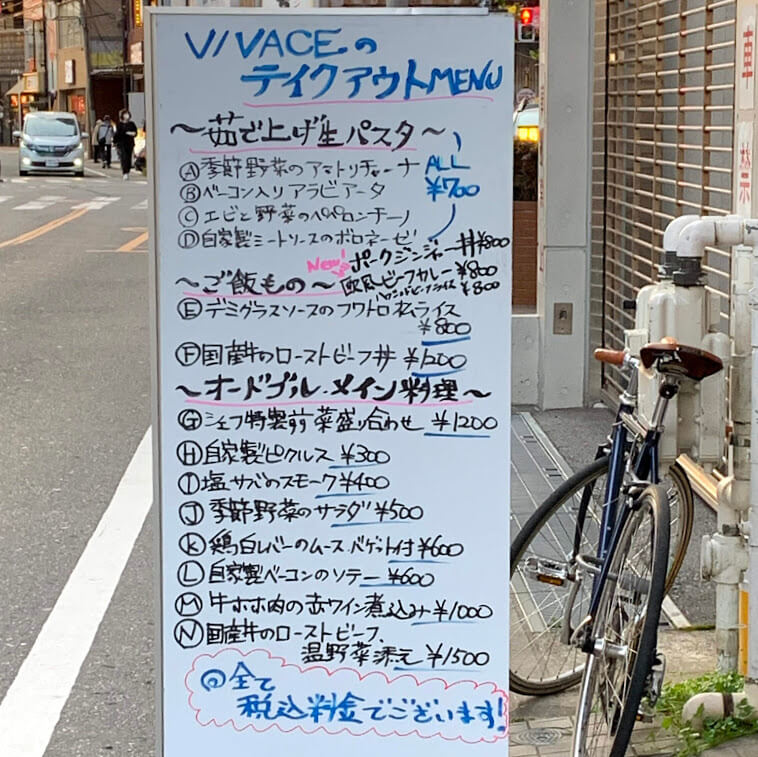 VIVACEの
テイクアウトMENU
〜茹で上げ生パスタ〜
Ⓐ季節野菜のアマトリチャーナ
Ⓑベーコン入りアラビアータ
Ⓒエビと野菜のペペロンチーノ
Ⓓ自家製ミートソースのボロネーゼ
ALL
¥700
New!
ポークジンジャー丼¥800
〜ご飯もの〜
欧風ビーフカレー¥800
¥800
Ⓔデミグラスソースのフワトロオムライス
¥800
Ⓕ国産牛のローストビーフ丼 ¥1200
〜オードブル・メイン料理〜
Ⓖシェフ特製前菜盛り合わせ ¥1200
Ⓗ自家製ピクルス ¥300
Ⓘ塩サバのスモーク ¥400
Ⓙ季節野菜のサラダ ¥500
Ⓚ鶏白レバーのムース、バゲット付 ¥600
Ⓛ自家製ベーコンのソテー ¥600
Ⓜ牛ホホ肉の赤ワイン煮込み ¥1000
Ⓝ国産牛のローストビーフ、
温野菜添え ¥1500
◎全て
税込料金でございます!
車
禁
示